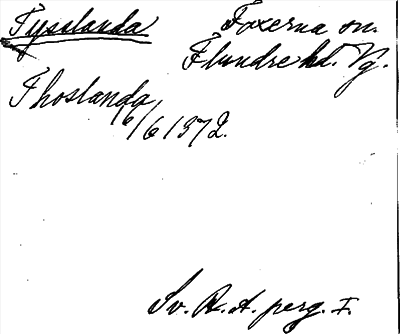 Tysslanda Foxerna sn.
Flundre hd. Vg.
Thoslanda
16/6 1372.
Sv. R. A. perg. I.